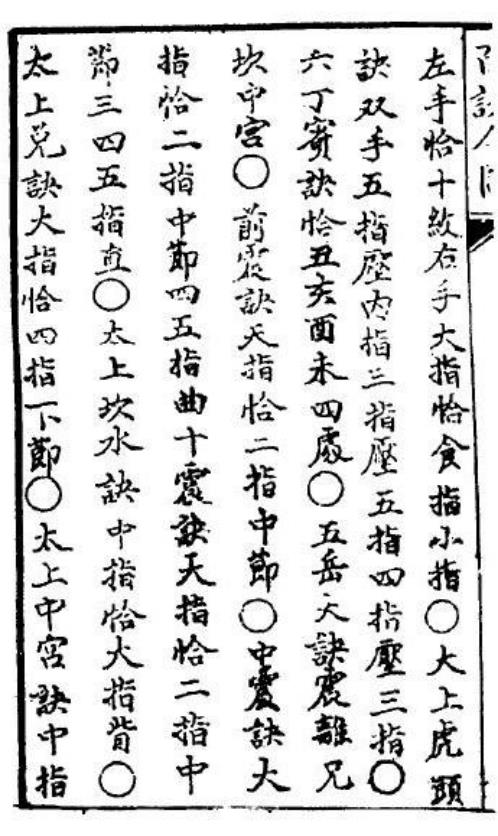 左手恰十紋右手大指恰食指小指○大上虎頭
訣双手五指壓内指三指壓五指四指壓三指○
六丁賓訣恰丑亥酉未四處○五岳大訣震離兄
坎中宮○前震訣天指恰二指中節○中震訣大
指恰二指中節四五指曲十震訣天指恰二指中
節三四五指直○太上坎水訣中指恰大指背○
太上兑訣大指恰四指下節○太上中宮訣中指